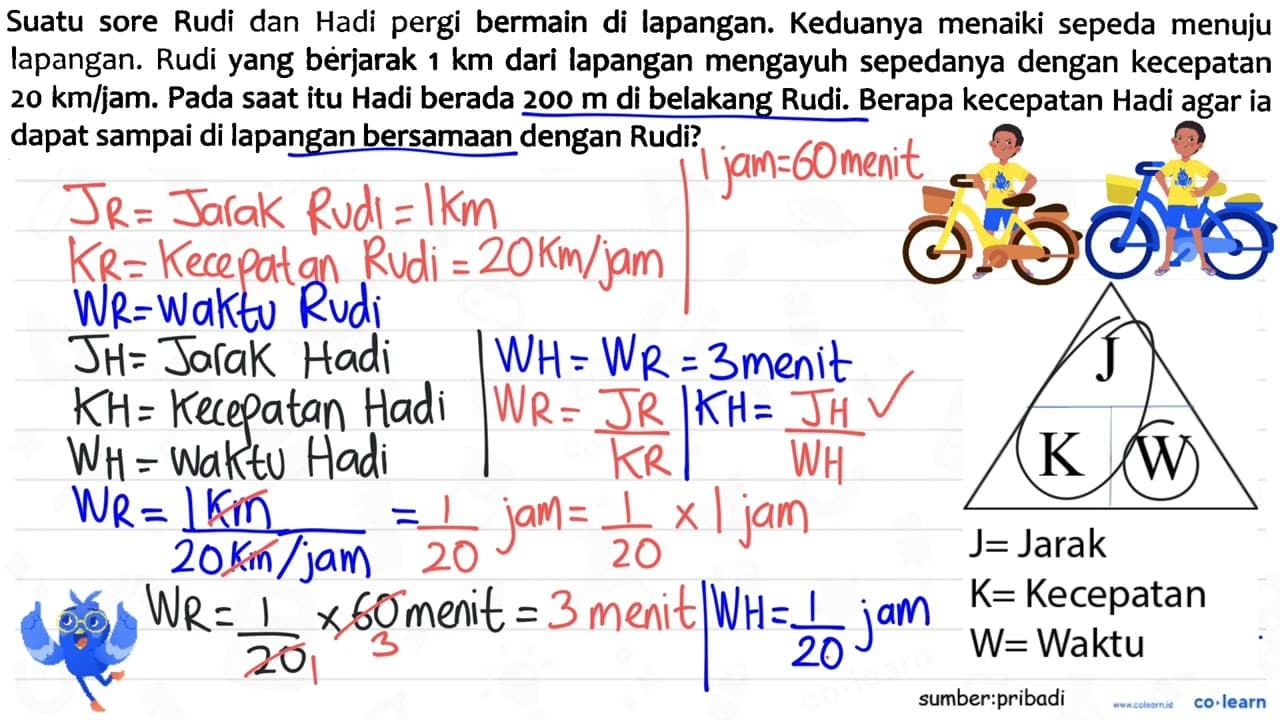 Suatu sore Rudi dan Hadi pergi bermain di lapangan. Keduanya menaiki sepeda menuju
lapangan. Rudi yang berjarak 1 km dari lapangan mengayuh sepedanya dengan kecepatan
20 km/jam. Pada saat itu Hadi berada 200 m di belakang Rudi. Berapa kecepatan Hadi agar ia
dapat sampai di lapangan bersamaan dengan Rudi?
1 jam=60 menit
JR= Jarak Rudi = 1 Km
KR= Kecepatan Rudi = 20 Km/jam
WR= Waktu Rudi
JH= Jarak Hadi
KH= Kecepatan Hadi
WH= Waktu Hadi
WH = WR = 3 menit
WR = JR/KR | KH = JH/WH ✓
WR = 1 Km / 20 Km/jam = 1/20 jam = 1/20 x 1 jam
WR = 1/20 x 60 menit = 3 menit | WH = 1/20 jam
3
1
J
K W
J= Jarak
K= Kecepatan
W= Waktu
sumber:pribadi
www.colearn.id co·learn